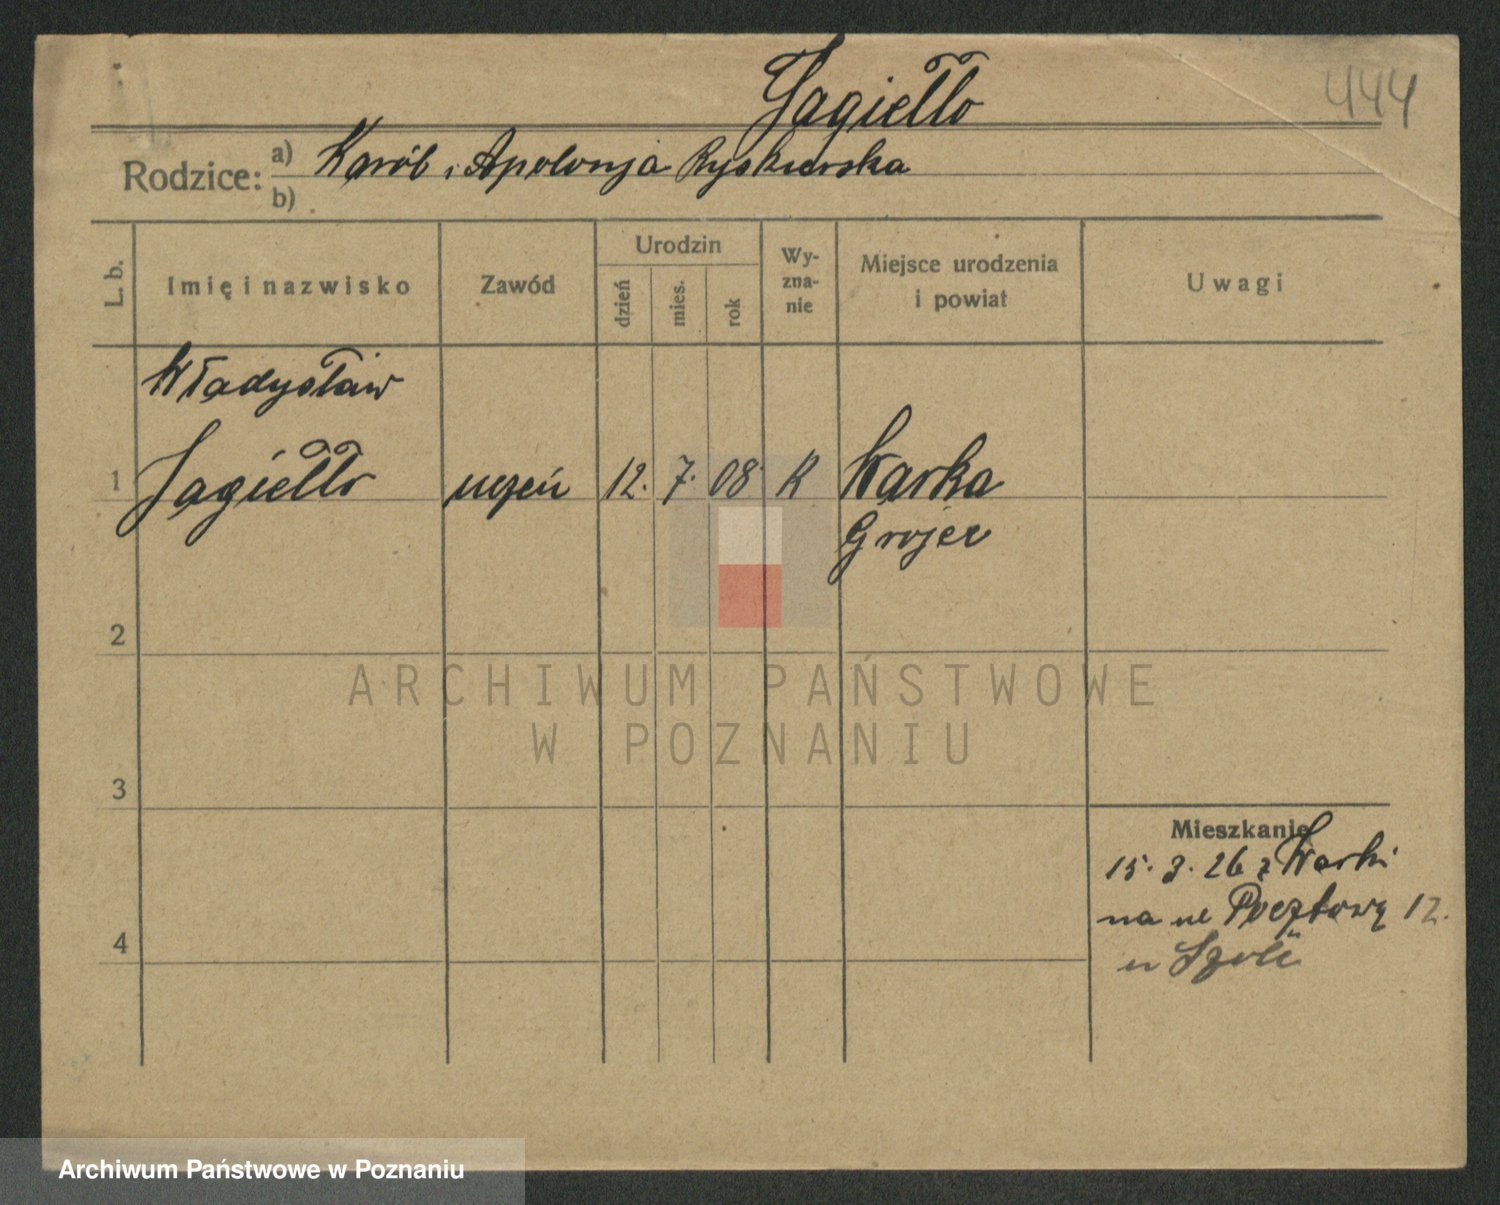 Jagiełło
444
Rodzice: a) Karól i Apolonja
b)
L. b.
Imię i nazwisko
Zawód
Urodzin
dzień
mies.
rok
Wy-
zna-
nie
Miejsce urodzenia
i powiat
Uwagi
Władysław
1 Jagiełło uczeń 12. 7. 08 K Warka
Grojec
2
3
4
Mieszkanie
15. 3. 26 z Warki
na ul Pocztową 12.
u
ARCHIWUM PAŃSTWOWE
W POZNANIU
Archiwum Państwowe w Poznaniu